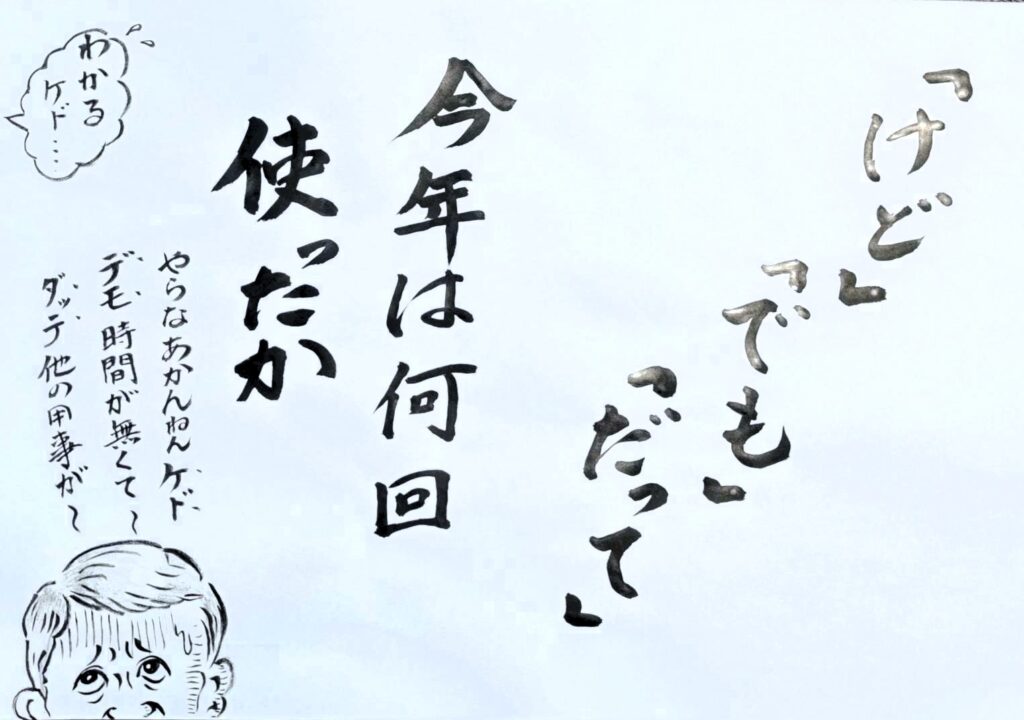 「けど」
「でも」
「だって」
今年は何回
使ったか
やらなあかんねんケド
デモ時間が無くて〜
ダッテ他の用事が〜
わかる
ケド……